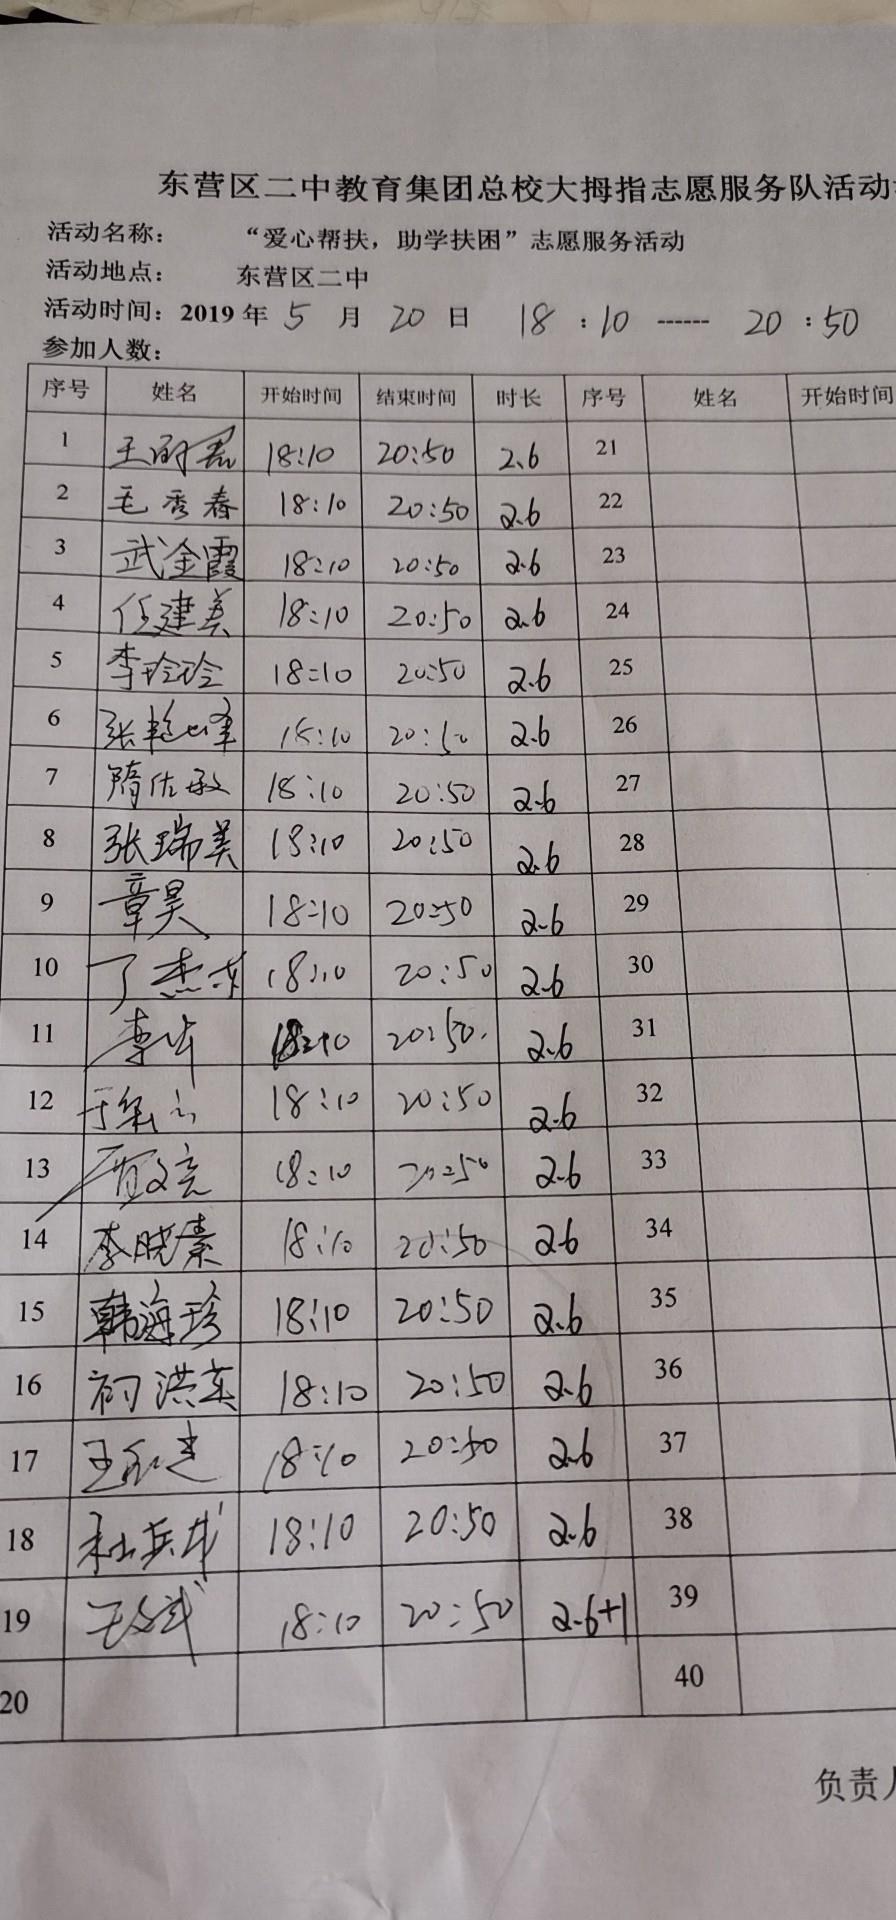 东营区二中教育集团总校大拇指志愿服务队活动
活动名称： “爱心帮扶，助学扶困”志愿服务活动
活动地点： 东营区二中
活动时间：2019年 5 月 20 日 18 : 10 ------ 20 : 50
参加人数：
序号 姓名 开始时间 结束时间 时长 序号 姓名 开始时间
1 18:10 20:50 2.6 21
2 毛秀春 18:10 20:50 2.6 22
3 武金霞 18:10 20:50 2.6 23
4 任建美 18:10 20:50 2.6 24
5 李玲玲 18:10 20:50 2.6 25
6 张艳峰 18:10 20:50 2.6 26
7 隋佐敏 18:10 20:50 2.6 27
8 张瑞美 18:10 20:50 2.6 28
9 章昊 18:10 20:50 2.6 29
10 丁杰东 18:10 20:50 2.6 30
11 18:10 20:50 2.6 31
12 18:10 20:50 2.6 32
13 贾文亮 18:10 20:50 2.6 33
14 李晓素 18:10 20:50 2.6 34
15 韩海珍 18:10 20:50 2.6 35
16 18:10 20:50 2.6 36
17 18:10 20:50 2.6 37
18 18:10 20:50 2.6 38
19 18:10 20:50 2.6+1 39
20 40
负责人